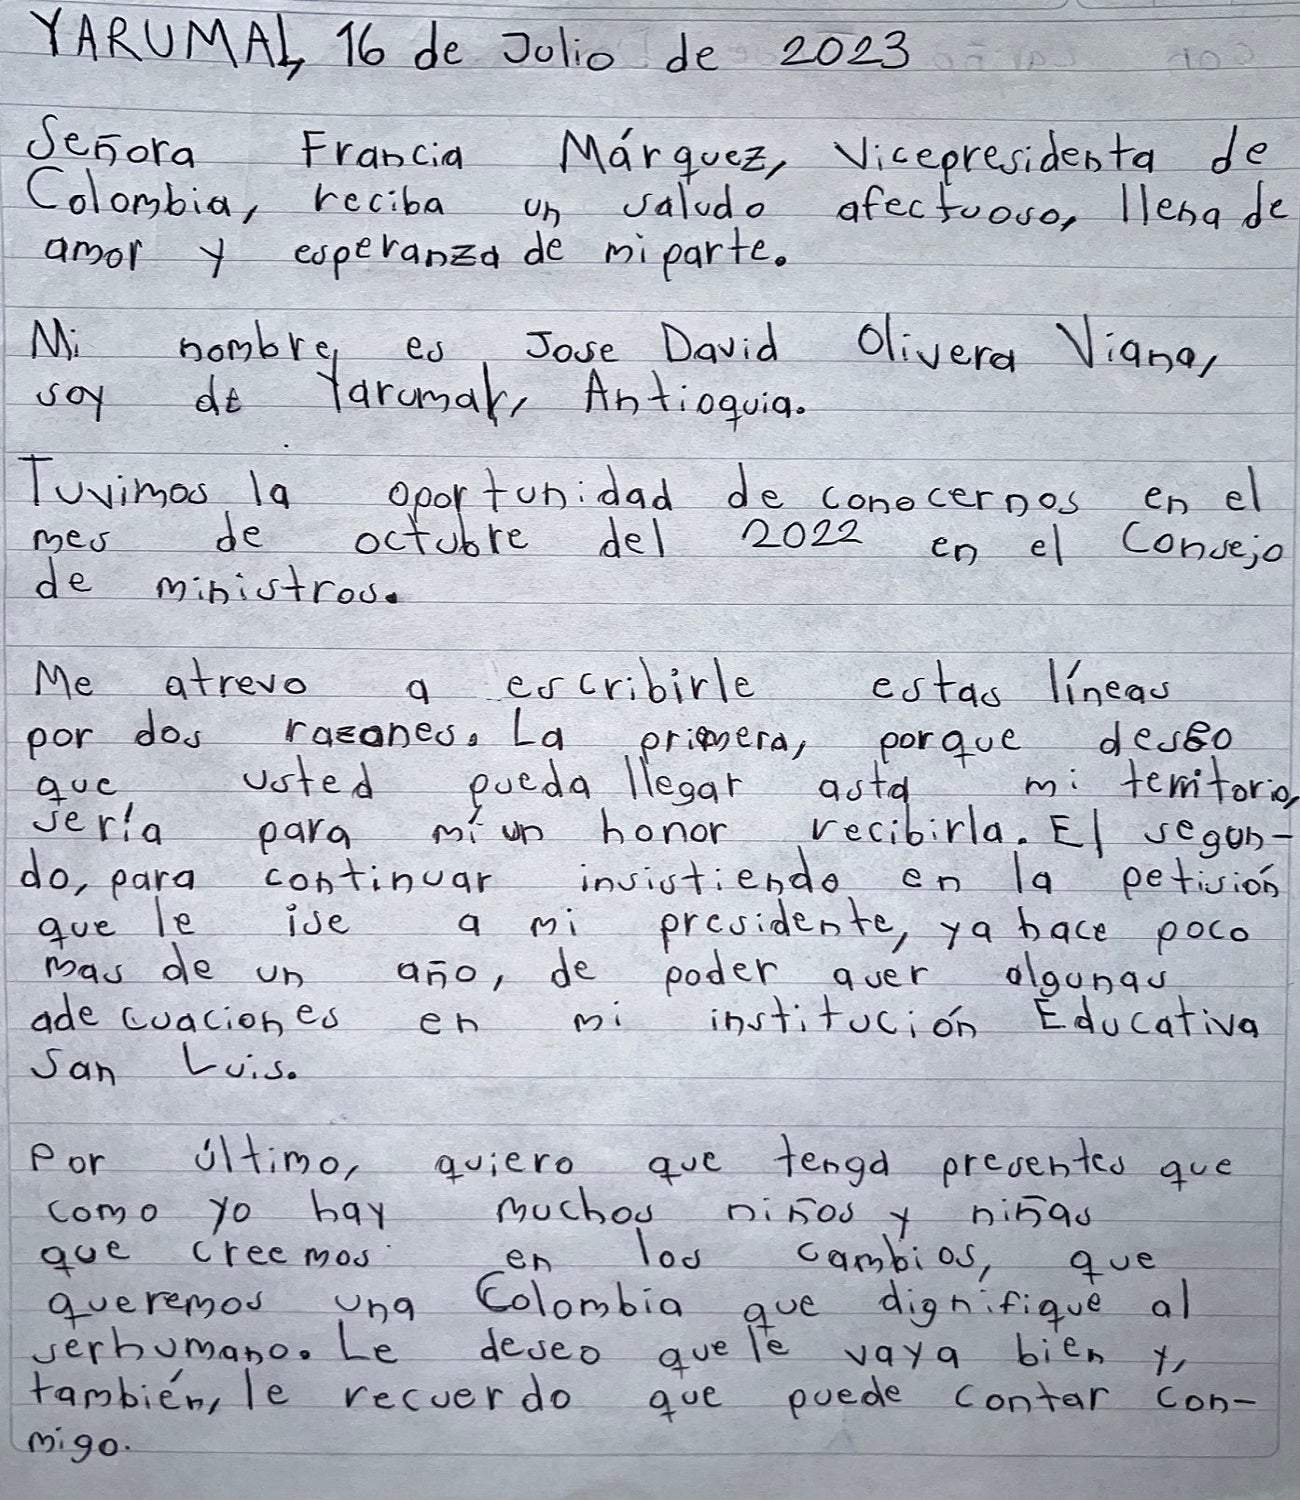 YARUMAL, 16 de Julio de 2023
Señora Francia Márquez, Vicepresidenta de
Colombia, reciba un saludo afectuoso, llena de
amor y esperanza de mi parte.
Mi nombre es Jose David Olivera Viana,
soy de Yarumal, Antioquia.
Tuvimos la oportunidad de conocernos en el
mes de octubre del 2022 en el Consejo
de ministros.
Me atrevo a escribirle estas líneas
por dos razones. La primera, porque deseo
que usted pueda llegar asta mi territorio,
sería para mí un honor recibirla. El segun-
do, para continuar insistiendo en la petisión
que le ise a mi presidente, ya hace poco
mas de un año, de poder aser algunas
adecuaciones en mi institución Educativa
San Luis.
Por último, quiero que tenga presentes que
como yo hay muchos niños y niñas
que creemos en los cambios, que
queremos una Colombia que dignifique al
serhumano. Le deseo que le vaya bien y,
también, le recuerdo que puede contar con-
migo.